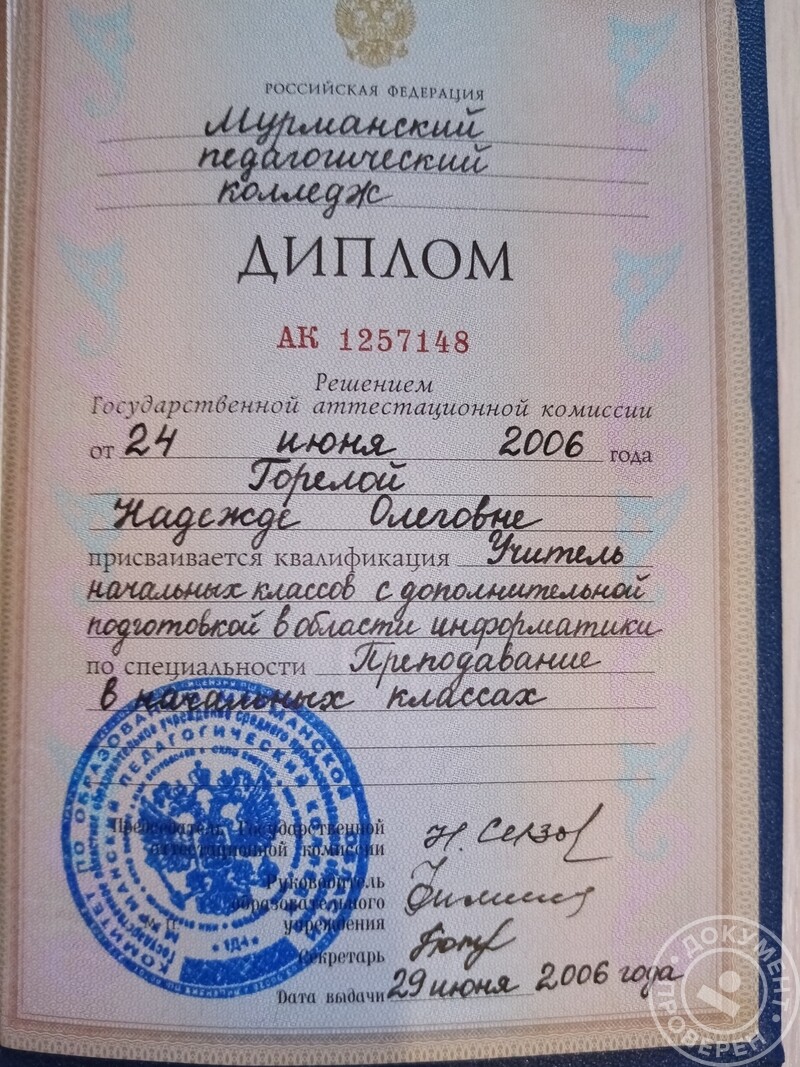 РОССИЙСКАЯ ФЕДЕРАЦИЯ
Мурманский
педагогический
колледж
ДИПЛОМ
АК 1257148
Решением
Государственной аттестационной комиссии
от 24 июня 2006 года
Горелой
Надежде Олеговне
присваивается квалификация Учитель
начальных классов с дополнительной
подготовкой в области информатики
по специальности Преподавание
в начальных классах
Председатель Государственной
аттестационной комиссии
Руководитель
образовательного
учреждения
Секретарь
Дата выдачи 29 июня 2006 года
КОМИТЕТ ПО ОБРАЗОВАНИЮ МУРМАНСКОЙ ОБЛАСТИ
МУРМАНСКИЙ ПЕДАГОГИЧЕСКИЙ КОЛЛЕДЖ
ДОКУМЕНТ
ПРОВЕРЕН